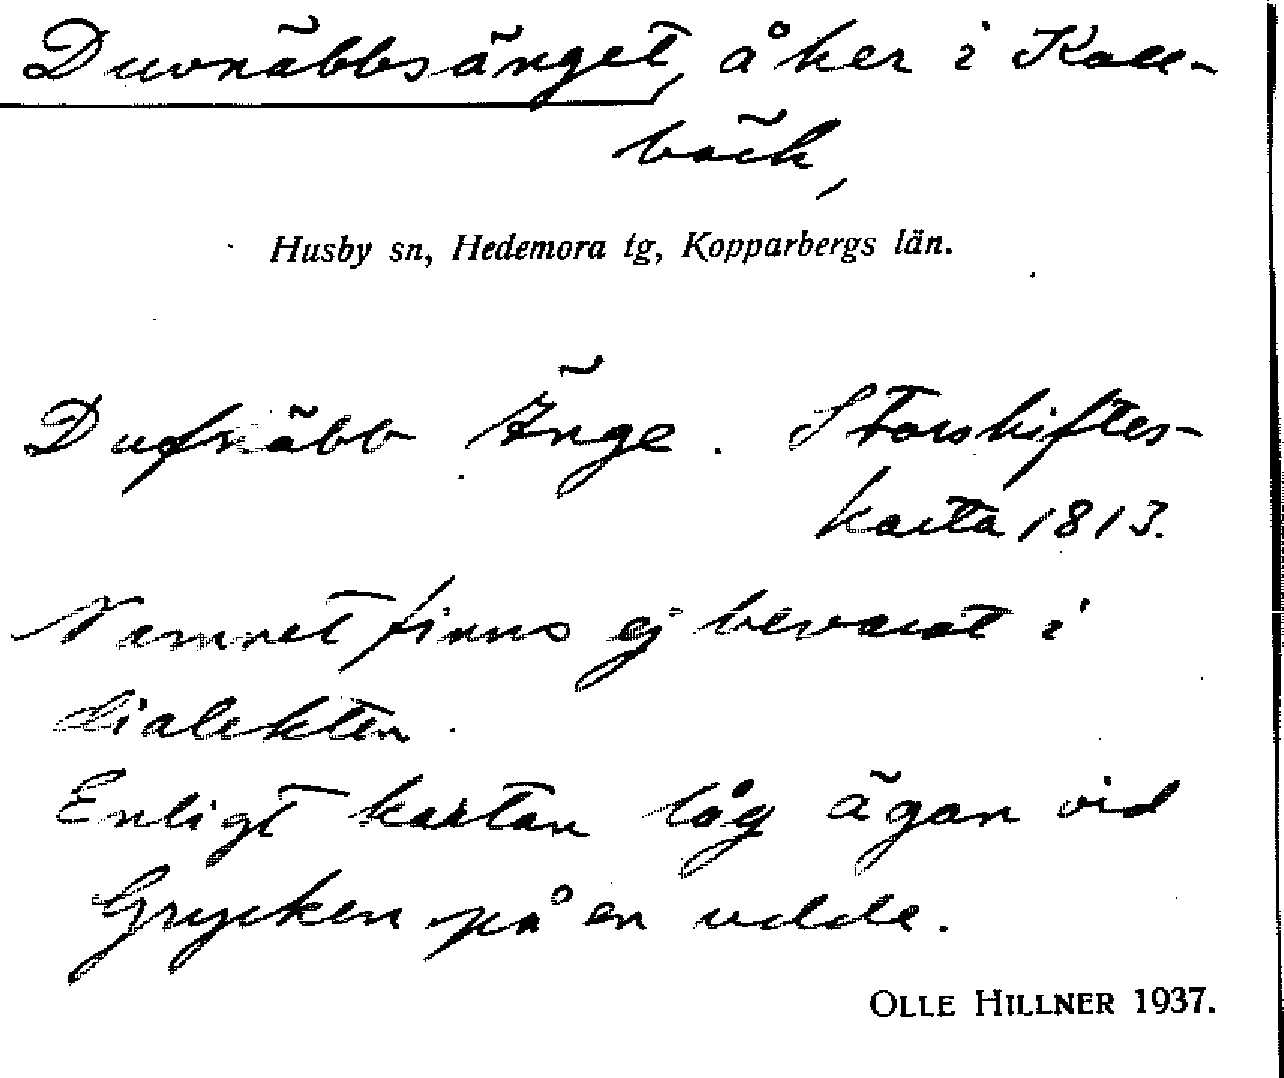 Duvnäbbsänget, åker i Kall-
bäck,
Husby sn, Hedemora tg, Kopparbergs län.
Dufnäbb Änge. Storskiftes-
karta 1813.
Namnet finns ej bevarat i
dialekten.
Enligt kartan låg ägan vid
Grycken på en udde.
OLLE HILLNER 1937.